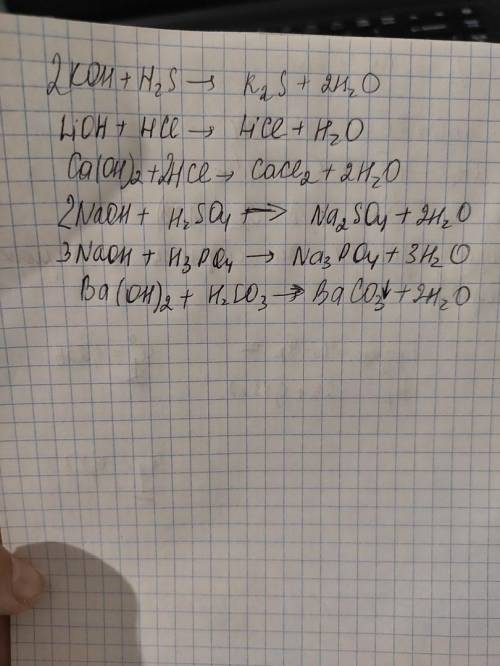 2KOH + H₂S → K₂S + 2H₂O
LiOH + HCl → LiCl + H₂O
Ca(OH)₂ + 2HCl → CaCl₂ + 2H₂O
2NaOH + H₂SO₄ → Na₂SO₄ + 2H₂O
3NaOH + H₃PO₄ → Na₃PO₄ + 3H₂O
Ba(OH)₂ + H₂CO₃ → BaCO₃↓ + 2H₂O